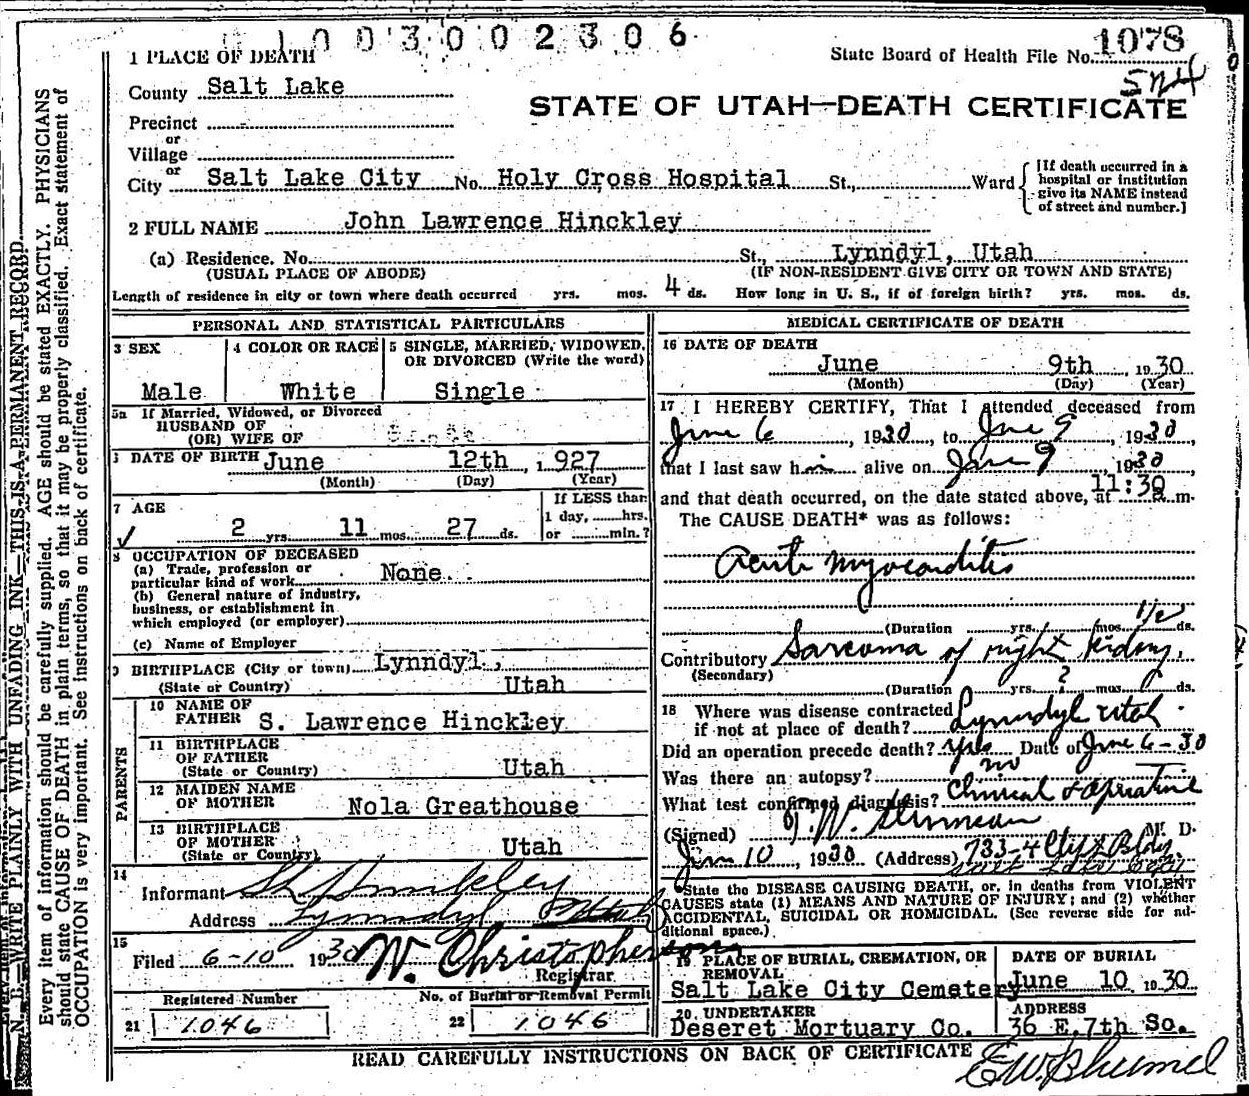 1003002306
1 PLACE OF DEATH
State Board of Health File No. 1078
County Salt Lake
STATE OF UTAH—DEATH CERTIFICATE
Precinct
or
Village
or
City Salt Lake City No. Holy Cross Hospital St., Ward
[If death occurred in a
hospital or institution
give its NAME instead
of street and number.]
2 FULL NAME John Lawrence Hinckley
(a) Residence. No. St., Lynndyl, Utah
(USUAL PLACE OF ABODE) (IF NON-RESIDENT GIVE CITY OR TOWN AND STATE)
Length of residence in city or town where death occurred yrs. mos. 4 ds. How long in U. S., if of foreign birth? yrs. mos. ds.
PERSONAL AND STATISTICAL PARTICULARS
3 SEX
Male
4 COLOR OR RACE
White
5 SINGLE, MARRIED, WIDOWED,
OR DIVORCED (Write the word)
Single
5a If Married, Widowed, or Divorced
HUSBAND OF
(OR) WIFE OF
DATE OF BIRTH June 12th, 1927
(Month) (Day) (Year)
7 AGE
2 yrs. 11 mos. 27 ds.
If LESS than
1 day, hrs.
or min.?
8 OCCUPATION OF DECEASED
(a) Trade, profession or
particular kind of work None.
(b) General nature of industry,
business, or establishment in
which employed (or employer)
(c) Name of Employer
9 BIRTHPLACE (City or town) Lynndyl,
(State or Country) Utah
PARENTS
10 NAME OF
FATHER S. Lawrence Hinckley
11 BIRTHPLACE
OF FATHER
(State or Country) Utah
12 MAIDEN NAME
OF MOTHER Nola Greathouse
13 BIRTHPLACE
OF MOTHER
(State or Country) Utah
14
Informant S L Hinckley
Address Lynndyl, Utah
15
Filed 6-10 1930 W. Christopherson
Registrar
Registered Number
21 1046
No. of Burial or Removal Permit
22 1046
MEDICAL CERTIFICATE OF DEATH
16 DATE OF DEATH
June 9th, 1930
(Month) (Day) (Year)
17 I HEREBY CERTIFY, That I attended deceased from
June 6, 1930, to June 9, 1930,
that I last saw him alive on June 9, 1930
and that death occurred, on the date stated above, at 11:30 a.m.
The CAUSE DEATH* was as follows:
Acute myocarditis
(Duration yrs. mos. 1/2 ds.
Contributory Sarcoma of right Kidney.
(Secondary)
(Duration yrs. ? mos. ds.
18 Where was disease contracted
if not at place of death? Lynndyl Utah.
Did an operation precede death? yes Date of June 6-30
Was there an autopsy? no
What test confirmed diagnosis? Clinical & Operative
(Signed) M. D.
June 10, 1930 (Address) 733-4 Clift Bldg.
Salt Lake City
*State the DISEASE CAUSING DEATH, or, in deaths from VIOLENT
CAUSES state (1) MEANS AND NATURE OF INJURY; and (2) whether
ACCIDENTAL, SUICIDAL OR HOMICIDAL. (See reverse side for ad-
ditional space.)
19 PLACE OF BURIAL, CREMATION, OR
REMOVAL
Salt Lake City Cemetery
DATE OF BURIAL
June 10, 1930
20. UNDERTAKER
Deseret Mortuary Co.
ADDRESS
36 E. 7th So.
READ CAREFULLY INSTRUCTIONS ON BACK OF CERTIFICATE
N. B.—WRITE PLAINLY WITH UNFADING INK—THIS IS A PERMANENT RECORD.
Every item of information should be carefully supplied. AGE should be stated EXACTLY. PHYSICIANS
should state CAUSE OF DEATH in plain terms, so that it may be properly classified. Exact statement of
OCCUPATION is very important. See instructions on back of certificate.